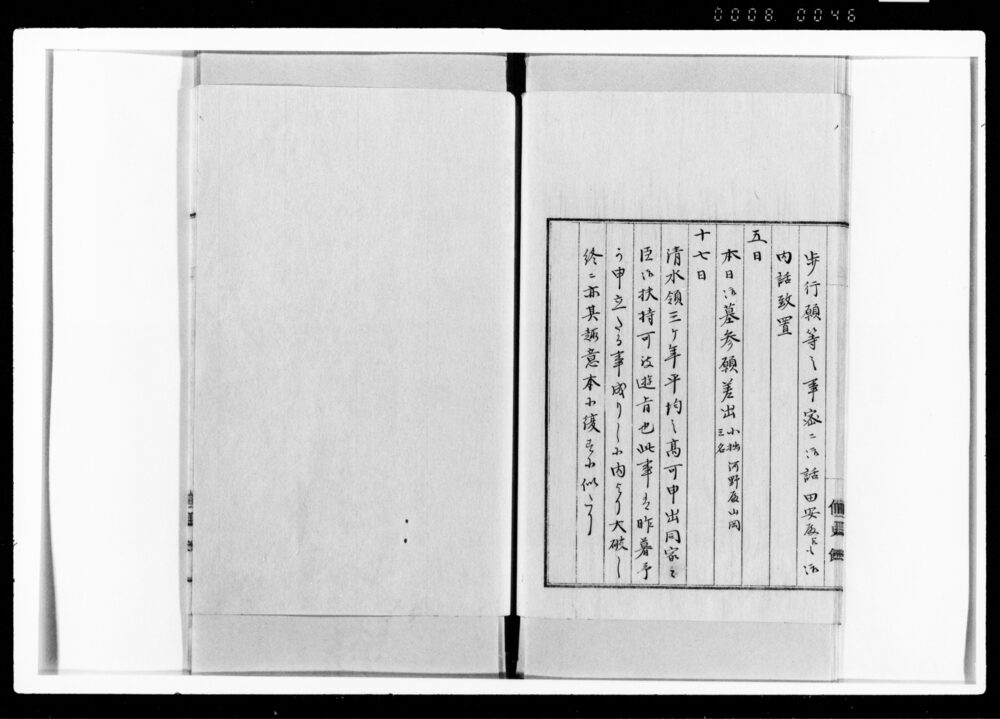 0008 0046
歩行願等之事密ニ御話田安殿よりも御
内話致置
五日
本日御墓参願差出小拙河野殿山岡
三名
十七日
清水領三ケ年平均之高可申出同家之
臣御扶持可被遊旨也此事は昨暮予
う申立たる事成りしに内より大破し
終ニ亦其趣意本に復するに似たり